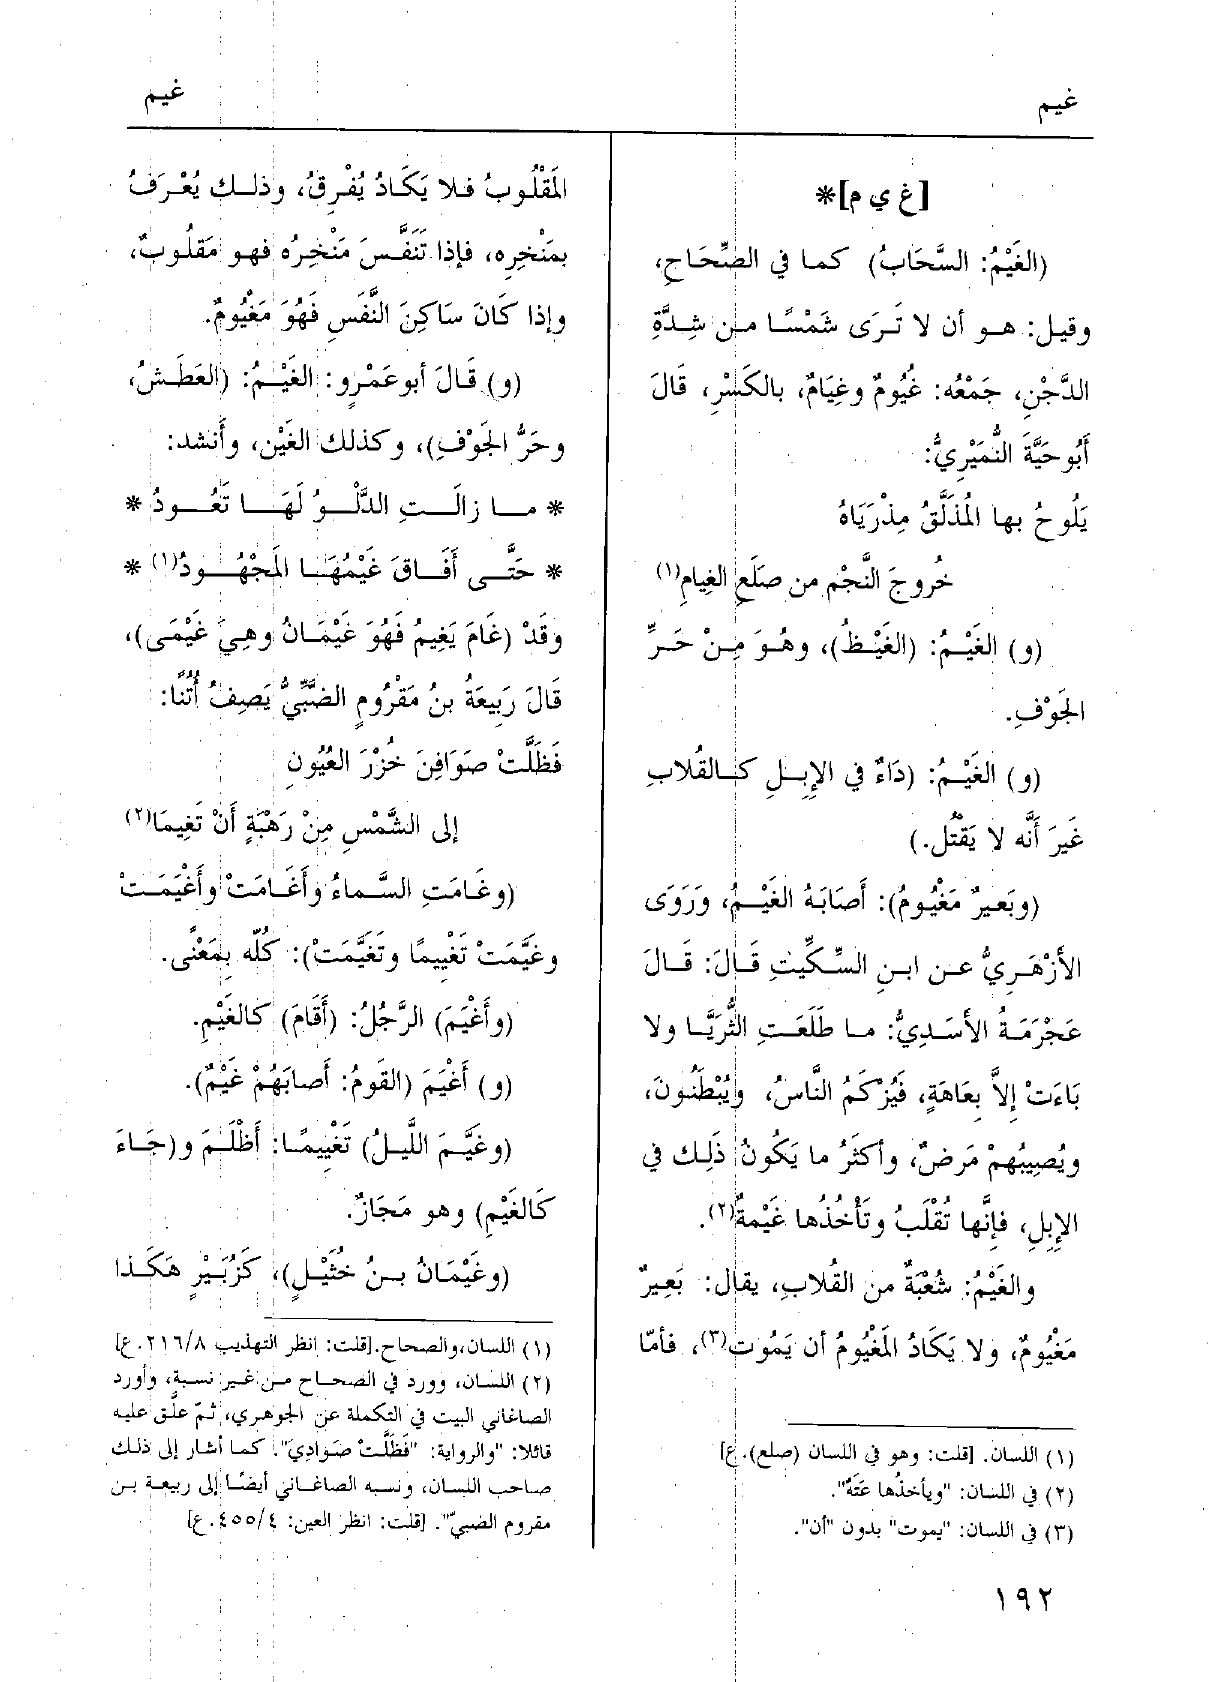 غيم
غيم
[غ ي م]*
(الغَيْمُ: السَّحَابُ) كما في الصِّحَاحِ،
وقيل: هو أن لا تَرَى شَمْسًا من شِدَّةِ
الدَّجْنِ، جَمْعُه: غُيُومٌ وغِيَامٌ، بالكَسْرِ، قَالَ
أَبُوحَيَّةَ النُّمَيْرِيُّ:
يَلُوحُ بها المُذَلَّقُ مِذْرَيَاهُ
خُروجَ النَّجْم من صَلَعِ الغِيامِ(١)
(و) الغَيْمُ: (الغَيْظُ)، وهُوَ مِنْ حَرِّ
الجَوْفِ.
(و) الغَيْمُ: (دَاءٌ في الإِبِلِ كالقُلابِ
غَيرَ أَنَّه لا يَقْتُل.)
(وبَعيرٌ مَغْيُومٌ): أَصَابَهُ الغَيْمُ، وَرَوَى
الأَزْهَرِيُّ عن ابنِ السِّكِّيتِ قَالَ: قَالَ
عَجْرَمَةُ الأَسَدِيُّ: ما طَلَعَتِ الثُّرَيَّا ولا
بَاءَتْ إلاَّ بِعَاهَةٍ، فَيُزْكَمُ النَّاسُ، ويُبْطَنُونَ،
ويُصِيبُهمْ مَرَضٌ، وأكثَرُ ما يَكُونُ ذَلِك في
الإِبِلِ، فَإِنَّها تُقْلَبُ وتَأْخُذُها غَيْمةٌ(٢).
والغَيْمُ: شُعْبَةٌ من القُلابِ، يقال: بَعِيرٌ
مَغْيُومٌ، ولا يَكَادُ المَغْيُومُ أن يَمُوت(٣)، فأمّا
(١) اللسان. [قلت: وهو في اللسان (صلع). ع]
(٢) في اللسان: "ويأخذُها عَتَهٌ".
(٣) في اللسان: "يموت" بدون "أن".
المَقْلُوبُ فلا يَكَادُ يُفْرِقُ، وذلك يُعْرَفُ
بمَنْخرِه، فإذا تَنَفَّسَ مَنْخِرُه فهو مَقلُوبٌ،
وإذا كَانَ سَاكِنَ النَّفَسِ فَهُوَ مَغْيُومٌ.
(و) قَالَ أبوعَمْرٍو: الغَيْمُ: (العَطَشُ،
وحَرُّ الجَوْفِ)، وكذلك الغَيْن، وأَنشد:
* ما زالَتِ الدَّلْوُ لَهَا تَعُودُ *
* حَتَّى أَفَاقَ غَيْمُهَا المَجْهُودُ(١) *
وقَدْ (غَامَ يَغِيمُ فَهُوَ غَيْمَانُ وهِيَ غَيْمَى)،
قَالَ رَبِيعَةُ بنُ مَقْرُومٍ الضَّبِّيُّ يَصِفُ أُتُنًا:
فَظَلَّتْ صَوَافِنَ خُزْرَ العُيُونِ
إلى الشَّمْسِ مِنْ رَهْبَةٍ أَنْ تَغِيمَا(٢)
(وغَامَتِ السَّماءُ وأَغَامَتْ وأَغْيَمَتْ
وغَيَّمَتْ تَغْيِيمًا وتَغَيَّمَتْ): كُلّه بِمَعْنًى.
(وأَغْيَمَ) الرَّجُلُ: (أَقَامَ) كالغَيْمِ.
(و) أَغْيَمَ (القَومُ: أَصابَهُمْ غَيْمٌ).
(وغَيَّمَ اللَّيلُ) تَغْيِيمًا: أَظْلَمَ و(جَاءَ
كَالغَيْمِ) وهو مَجَازٌ.
(وغَيْمَانُ بنُ خُثَيْلٍ)، كَزُبَيْرٍ هَكَذا
(١) اللسان،والصحاح.[قلت: انظر التهذيب ٢١٦/٨.ع]
(٢) اللسان، وورد في الصحاح من غير نسبة، وأورد
الصاغاني البيت في التكملة عن الجوهري، ثمّ علّق عليه
قائلا: "والرواية: "فَظَلَّتْ صَوَادِيَ". كما أشار إلى ذلك
صاحب اللسان، ونسبه الصاغاني أيضًا إلى ربيعة بن
مقروم الضبيّ". [قلت: انظر العين: ٤٥٥/٤.ع]
١٩٢